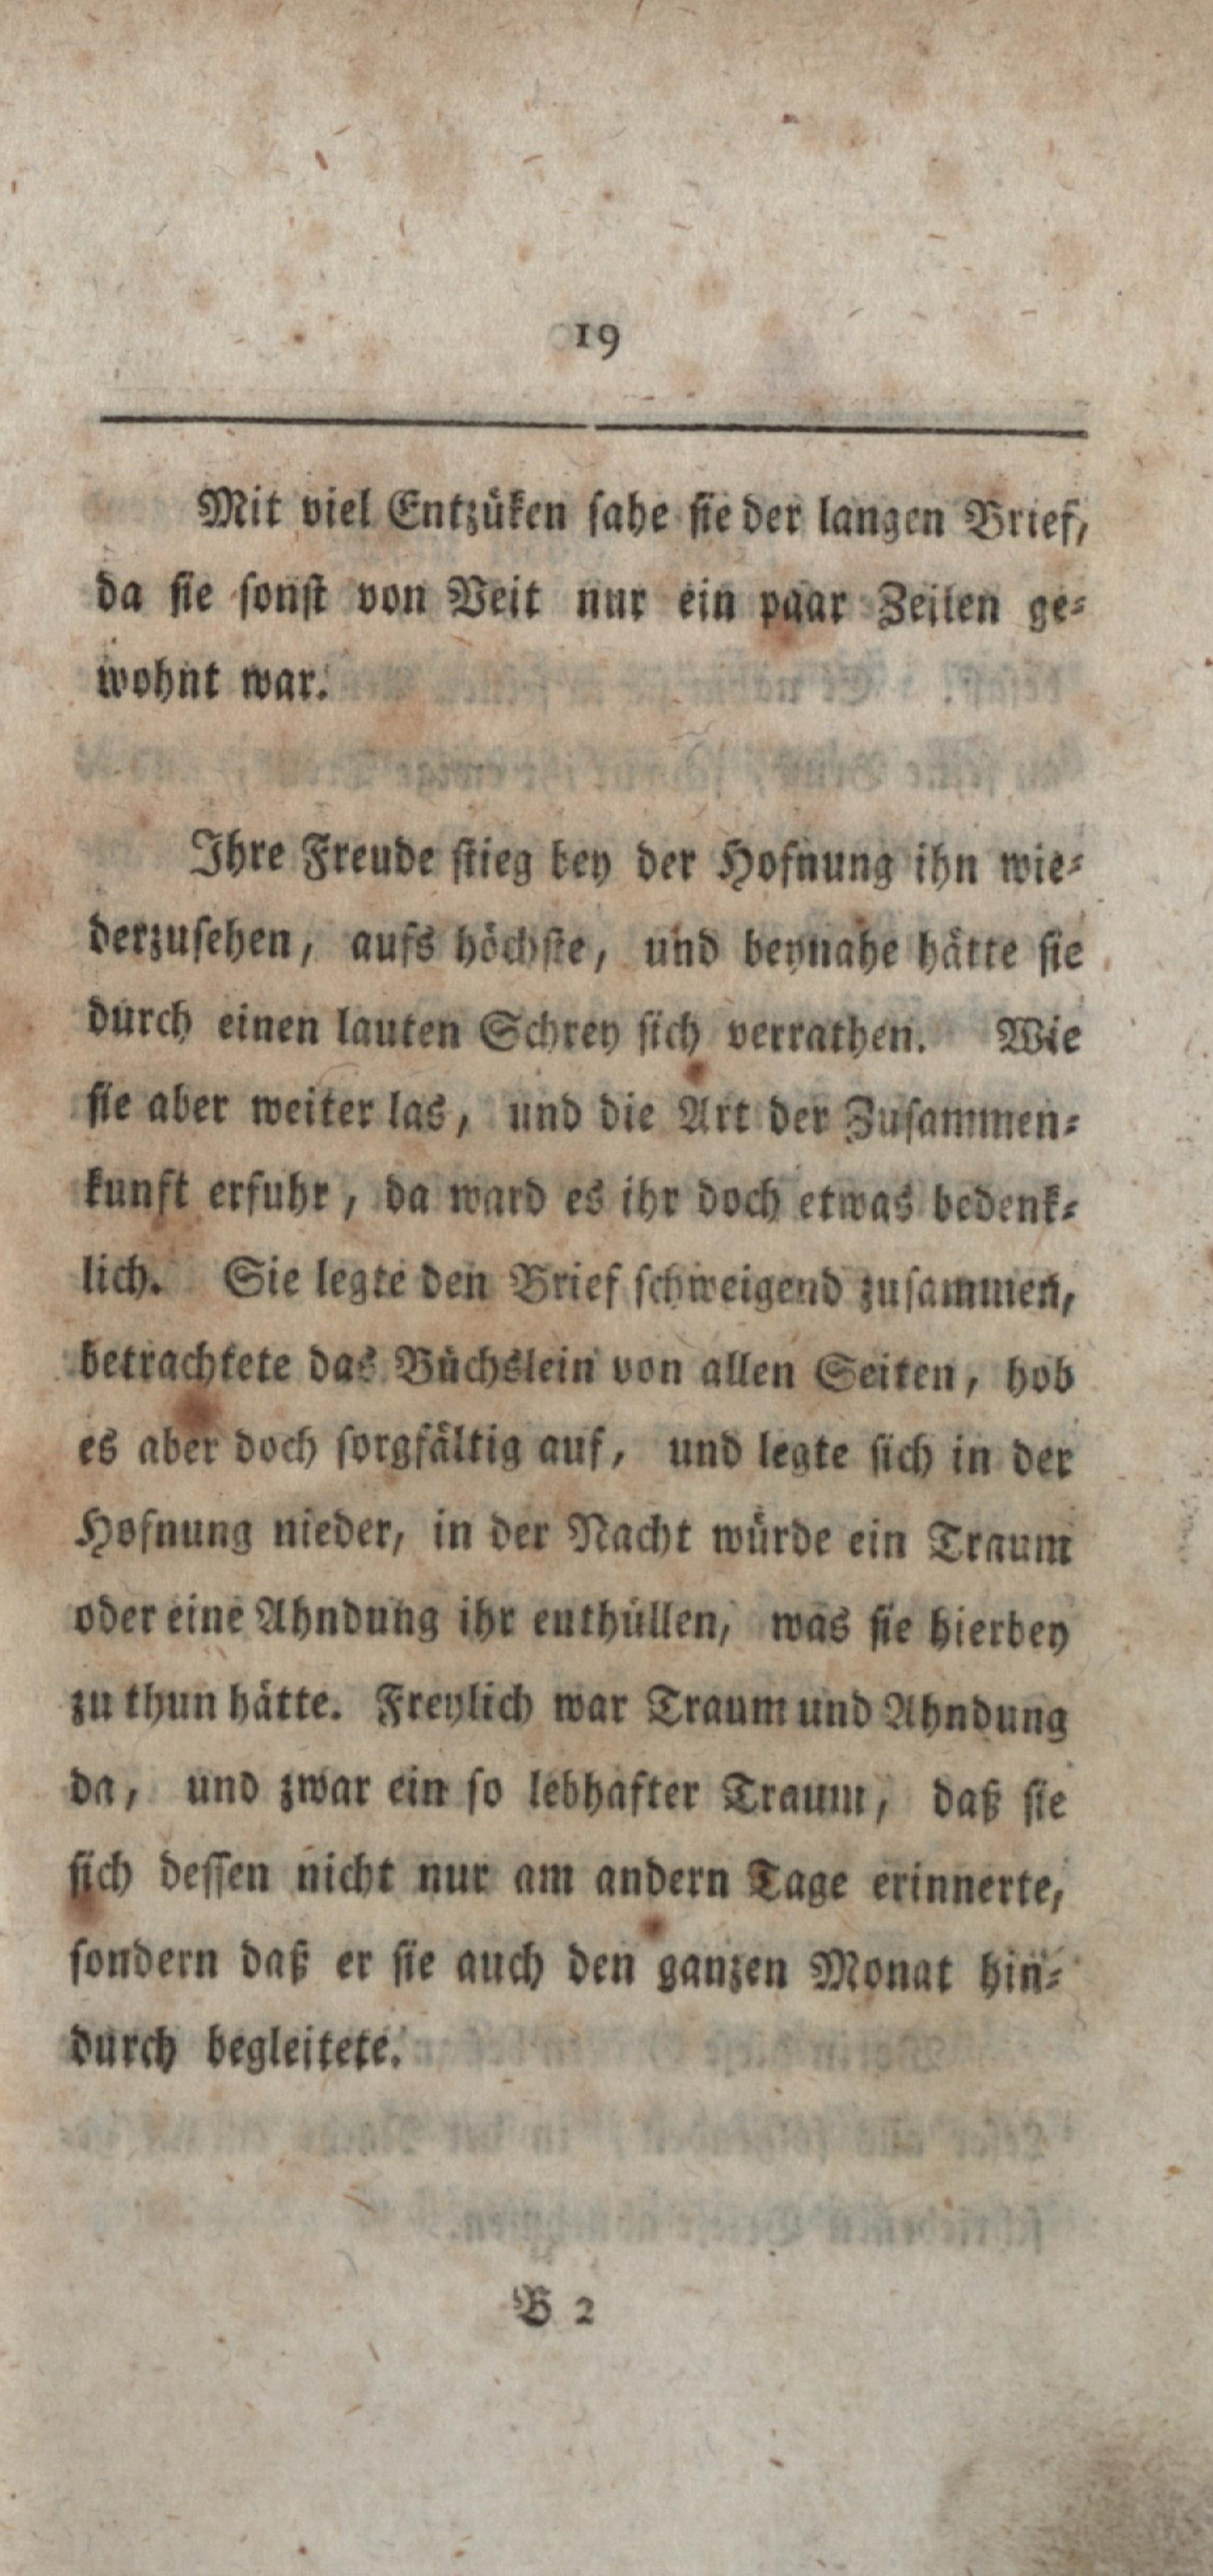 19
Mit viel Entzüken sahe sie der langen Brief,
da sie sonst von Veit nur ein paar Zeilen ge-
wohnt war.
Ihre Freude stieg bey der Hofnung ihn wie-
derzusehen, aufs höchste, und beynahe hätte sie
durch einen lauten Schrey sich verrathen. Wie
sie aber weiter las, und die Art der Zusammen-
kunft erfuhr, da ward es ihr doch etwas bedenk-
lich. Sie legte den Brief schweigend zusammen,
betrachtete das Büchslein von allen Seiten, hob
es aber doch sorgfältig auf, und legte sich in der
Hofnung nieder, in der Nacht würde ein Traum
oder eine Ahndung ihr enthüllen, was sie hierbey
zu thun hätte. Freylich war Traum und Ahndung
da, und zwar ein so lebhafter Traum, daß sie
sich dessen nicht nur am andern Tage erinnerte,
sondern daß er sie auch den ganzen Monat hin-
durch begleitete.
B 2